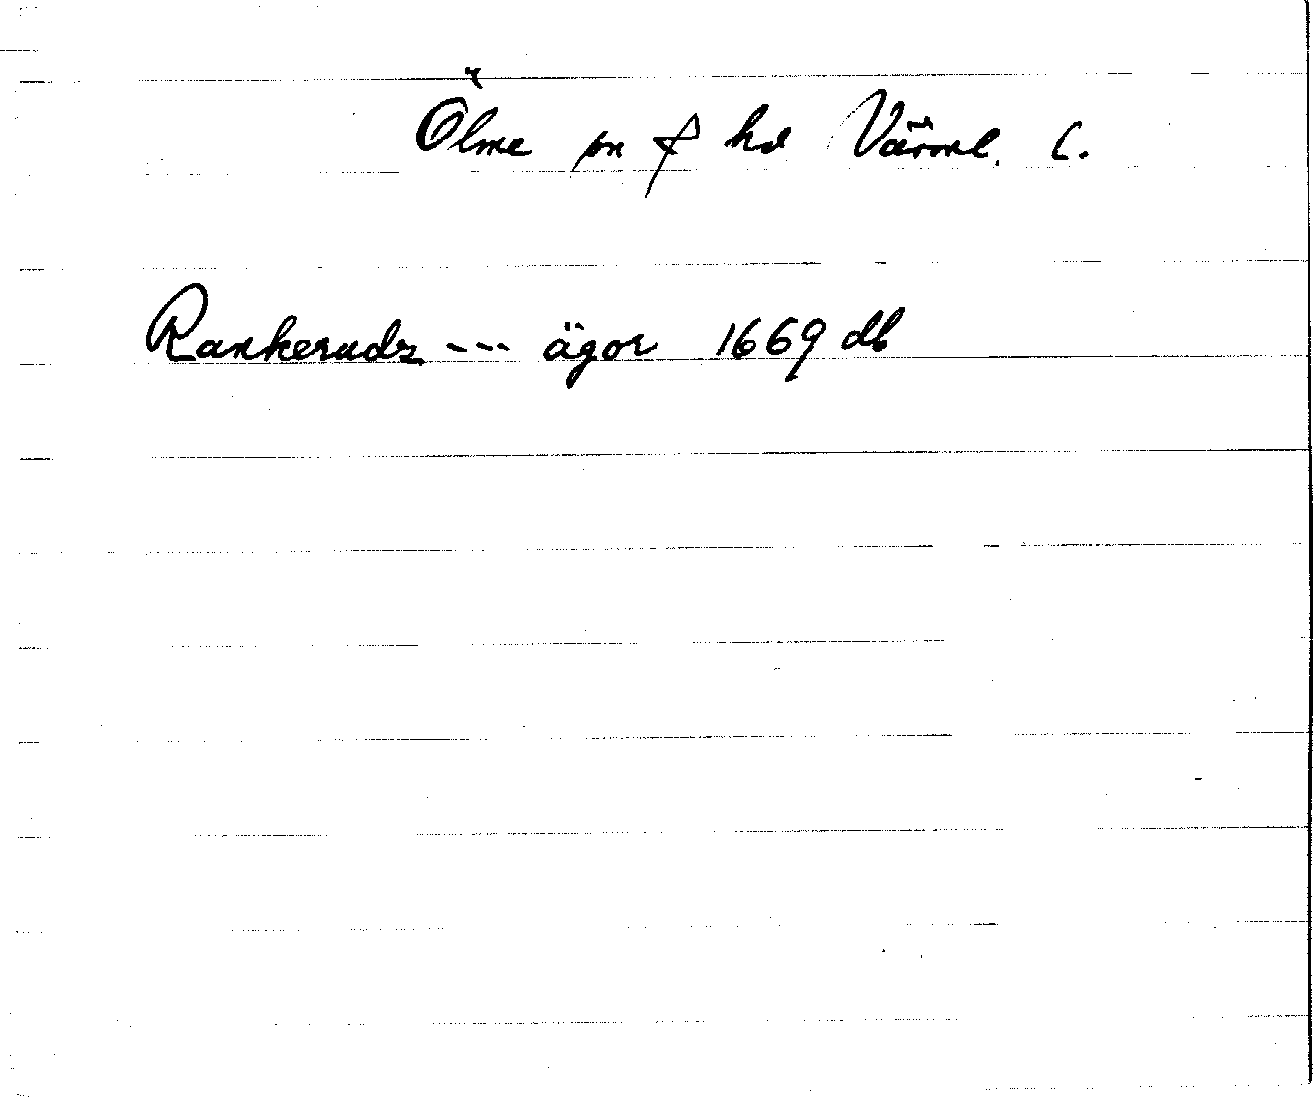 Ölme sn f hd Värml. l.
Rankeruds --- ägor 1669 db